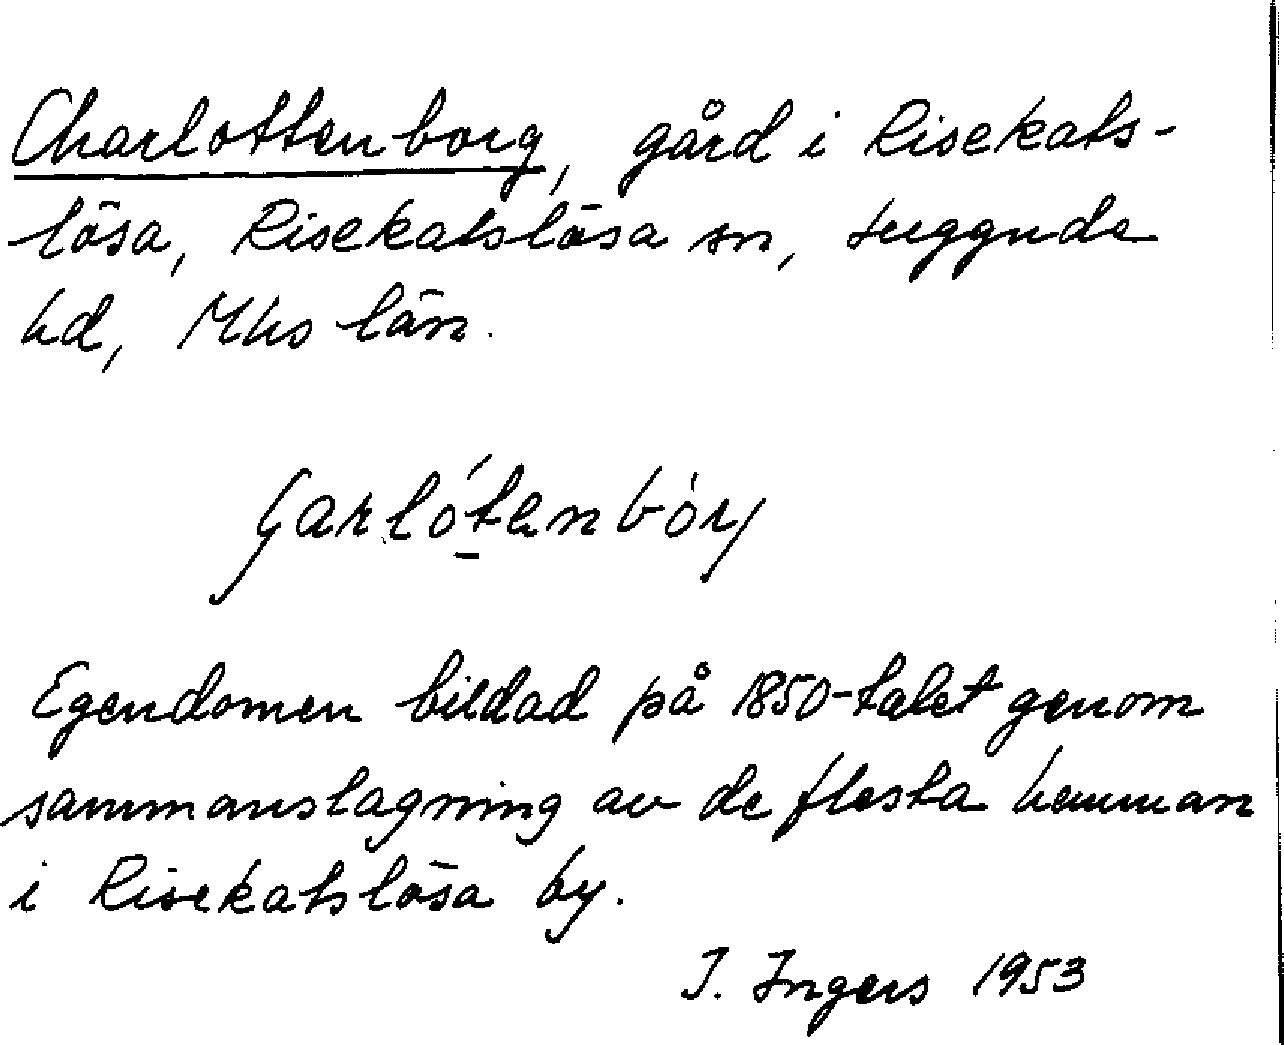 Charlottenborg, gård i Risekats-
lösa, Risekatslösa sn, Luggude
hd, Mhs län.
Egendomen bildad på 1850-talet genom
sammanslagning av de flesta hemman
i Risekatslösa by.
I. Ingers 1953